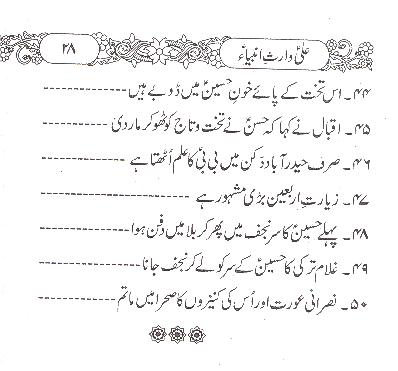 علیؑ وارثِ انبیاءؑ
۲۸
۴۴۔ اس تخت کے پائے خونِ حسینؑ میں ڈوبے ہیں ------------
۴۵۔ اقبال نے کہا کہ حسنؑ نے تخت و تاج کو ٹھوکر مار دی ------------
۴۶۔ صرف حیدرآباد دکن میں بی بیؑ کا علم اُٹھتا ہے ------------
۴۷۔ زیارتِ اربعین بڑی مشہور ہے ------------
۴۸۔ پہلے حسینؑ کا سر نجف میں پھر کربلا میں دفن ہوا ------------
۴۹۔ غلام ترکی کا حسینؑ کے سر کو لے کر نجف جانا ------------
۵۰۔ نصرانی عورت اور اُس کی کنیزوں کا صحرا میں ماتم ------------